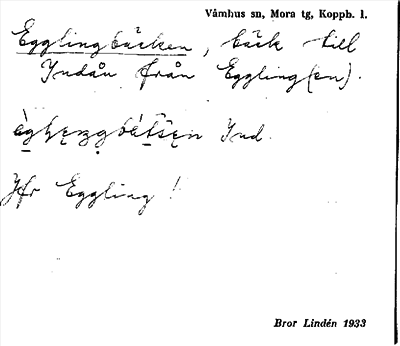 Våmhus sn, Mora tg, Koppb. l.
Egglingbäcken, bäck till
Indån från Eggling(en).
Ind.
Jfr Eggling!
Bror Lindén 1933